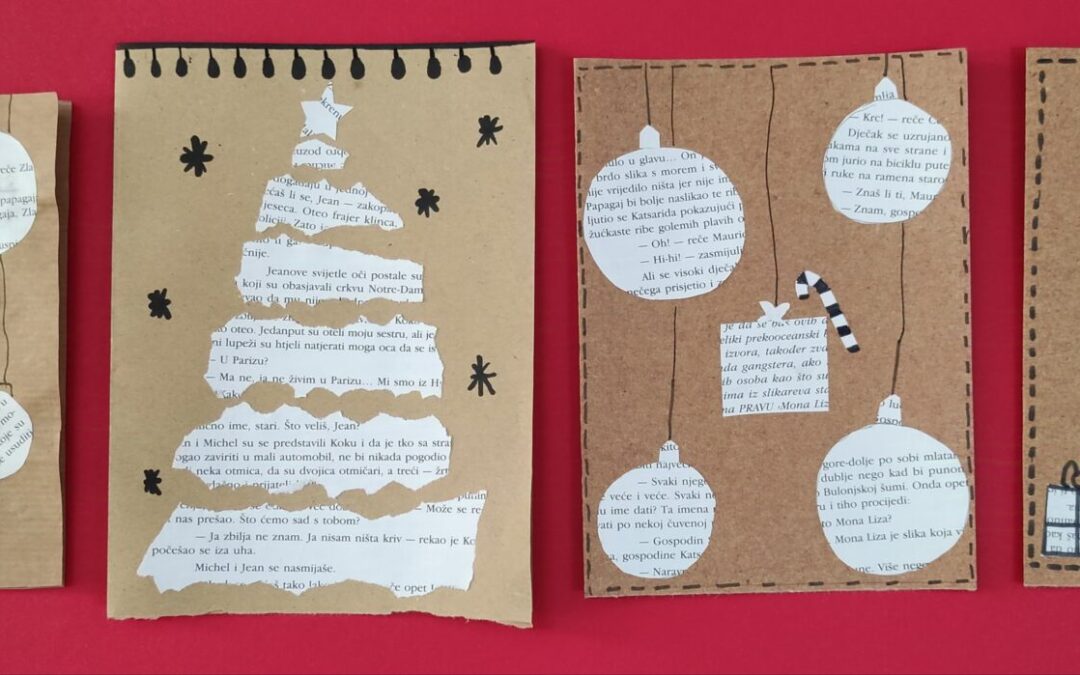 reče Zla
papagaj
gaja, Zla
mo-
oje su
usuditi
krenu
uzod
ophro
dogadaju u jednoj
ćaš li se, Jean — zakopa
jeseca. Oteo frajer klinca,
oliciji. Zato i
čnije.
Jeanove svijetle oči postale su
koji su obasjavali crkvu Notre-Dam
o oteo. Jedanput su oteli moju sestru, ali je
ni lupeži su htjeli natjerati moga oca da se is
— U Parizu?
— Ma ne, ja ne živim u Parizu... Mi smo iz H
čno ime, stari. Što veliš, Jean?
n i Michel su se predstavili Koku i da je tko sa stra
ogao zaviriti u mali automobil, ne bi nikada pogodio
neka otmica, da su dvojica otmičari, a treći — žr
— Može se re
nas prešao. Što ćemo sad s tobom?
— Ja zbilja ne znam. Ja nisam ništa kriv — rekao je Ko
počešao se iza uha.
Michel i Jean se nasmijaše.
tako
če opet
ulo u glavu... On
brdo slika s morem i s
uje vrijedilo ništa jer nije im
Papagaj bi bolje naslikao te rib
ljutio se Katsarida pokazujući p
žućkaste ribe golemih plavih o
— Oh! — reče Mauric
— Hi-hi! — zasmijuli
Ali se visoki dječa
nečega prisjetio i z
mlia
— Krc! — reče C
Dječak se uzrujano
akama na sve strane i
om jurio na biciklu pute
i ruke na ramena staro
— Znaš li ti, Mau
— Znam, gospo
je da se baš ovih d
eliki prekooceanski b
izvora, također zva
da gangstera, ako
ih osoba kao što su
ima iz slikareva sta
na PRAVU Mona Liz
kito
najveće
— Svaki njeg
veće i veće. Svaki n
u ime dati? Ta imena
ati po nekoj čuvenoj
— Gospodin
e, gospodine Kats
— Naray
lu
gosp
gore-dolje po sobi mlatar
dublje nego kad bi punom
Bulonjskoj šumi. Onda opet
u i tiho procijedi:
to Mona Liza?
Mona Liza je slika koja v
ne. Više nego